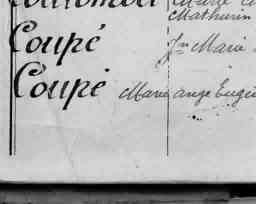 Mathurin
Coupé Jn Marie
Coupé Marie ange Eugén